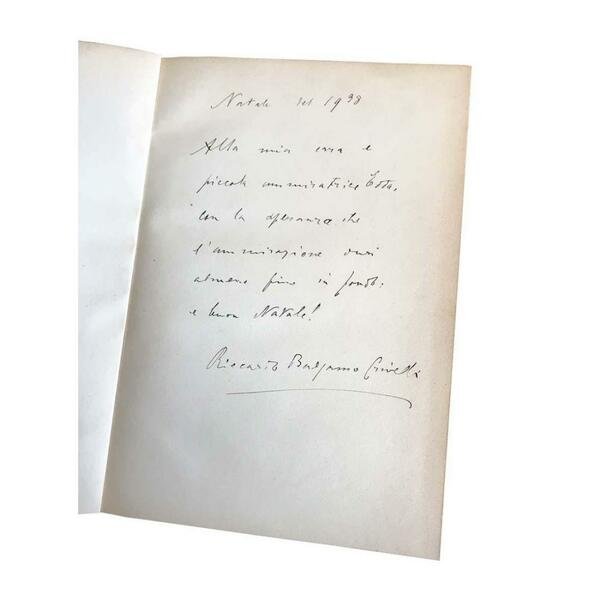 Natale del 1938
Alla mia cara e
piccola ammiratrice
con la speranza che
l'ammirazione duri
almeno fino in fondo.
e buon Natale!
Riccardo Balsamo Crivelli